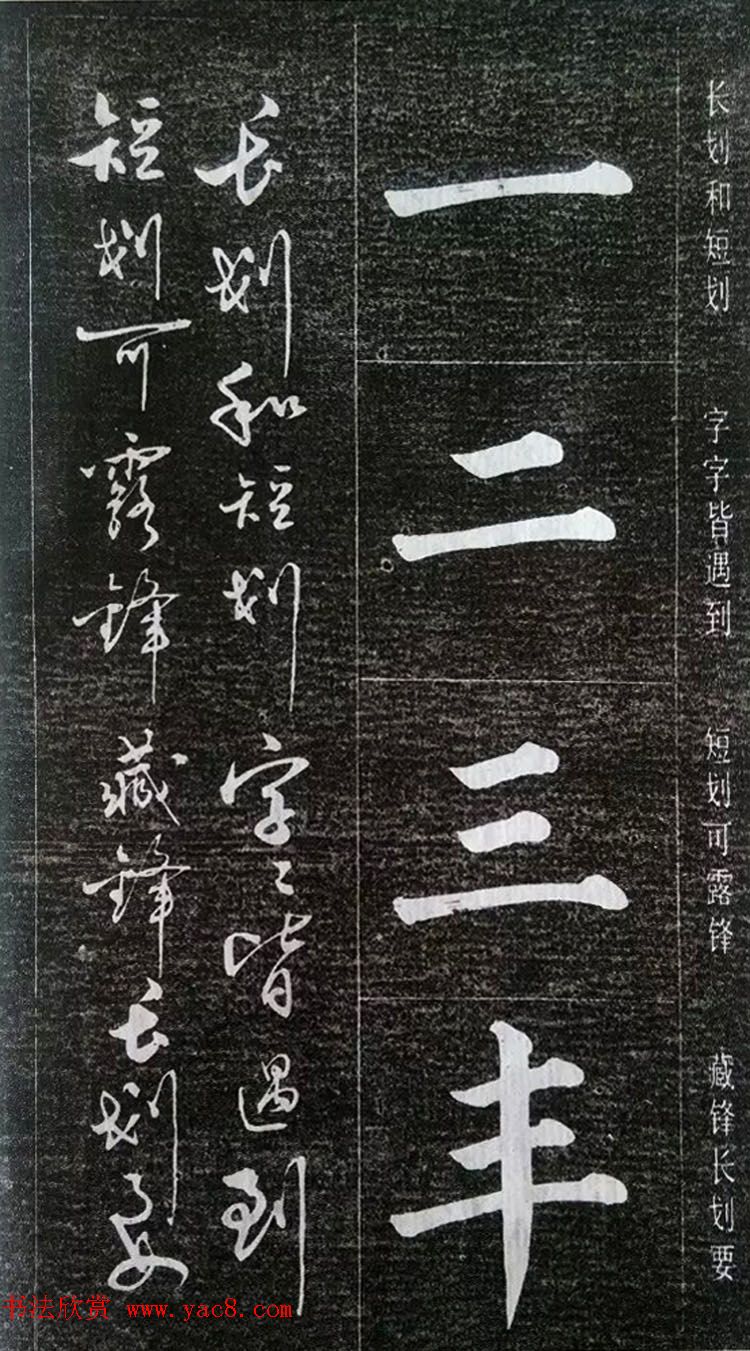 长划和短划 字字皆遇到 短划可露锋 藏锋长划要
一
二
三
丰
长划和短划字〻皆遇到
短划可露锋藏锋长划要
书法欣赏 www.yac8.com